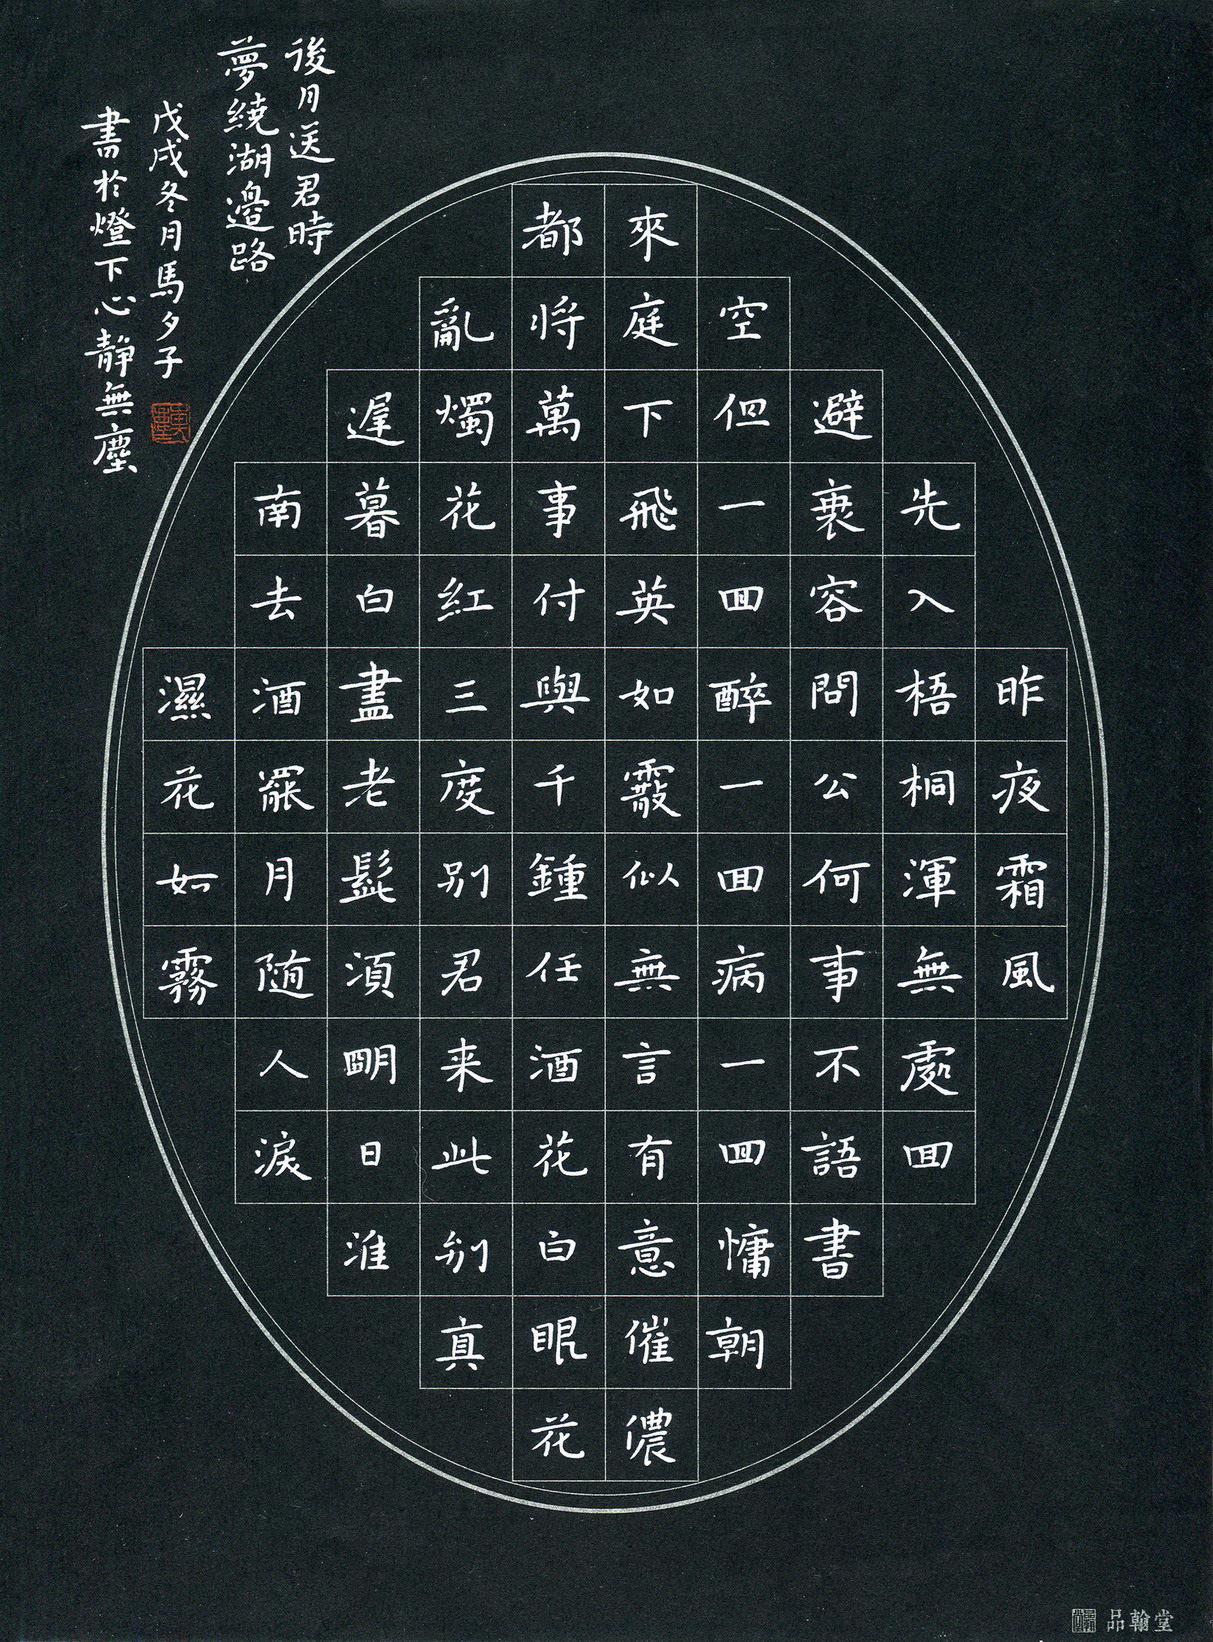 昨夜霜風
先入梧桐渾無處回
避衰容問公何事不語書
空但一回醉一回病一回慵朝
來庭下飛英如霰似無言有意催儂
都将萬事付與千鍾任酒花白眼花
亂燭花紅三度别君来此别真
遲暮白盡老髭須明日淮
南去酒罷月随人淚
濕花如霧
後月送君時
夢繞湖邊路
戊戌冬月馬夕子
書於燈下心靜無塵
品翰堂